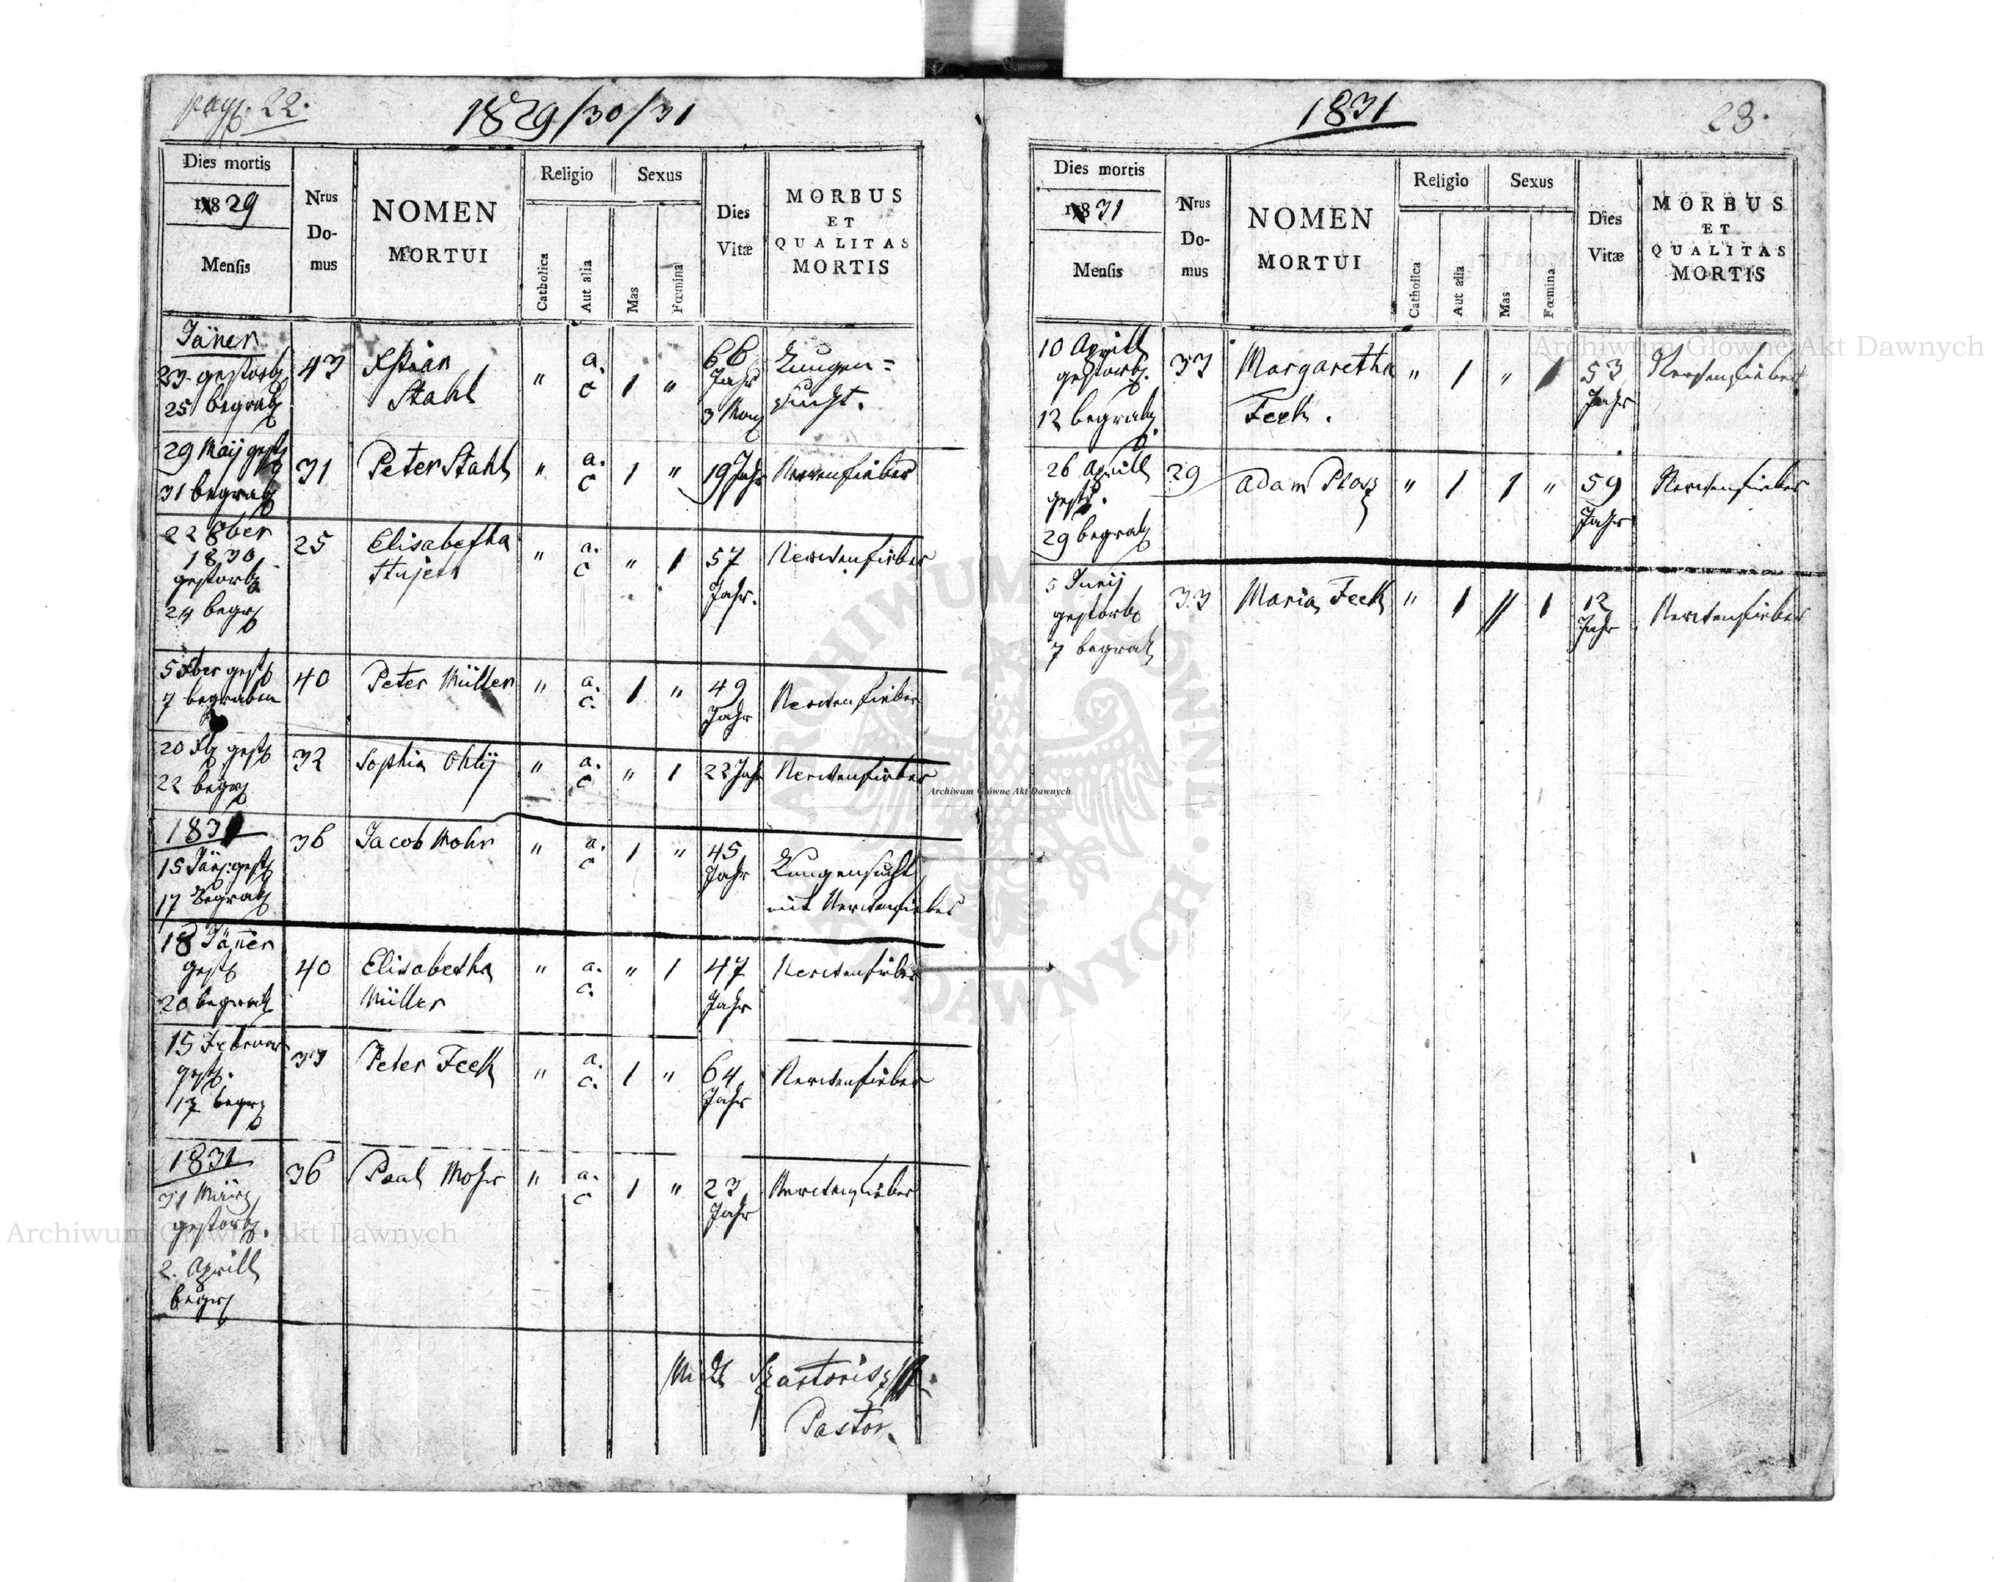 pag. 22.
1829/30/31
Dies mortis
1829
Mensis
Nrus
Do-
mus
NOMEN
MORTUI
Religio
Catholica
Aut alia
Sexus
Mas
Fœmina
Dies
Vitæ
MORBUS
ET
QUALITAS
MORTIS
Jäner
23. gestorb
25 begrab
43
Xstian
Stahl
"
a.
c
1
"
66
Jahr
3 Mon
Lungen=
sucht.
29 Maij gest
31 begrab
31
Peter Stahl
"
a.
c
1
"
19 Jahr
Nervenfieber
22 8ber
1830
gestorb
24 begr
25
Elisabetha
"
a.
c
"
1
57
Jahr.
Nervenfieber
5 Xber gest
7 begraben
40
Peter Müller
"
a.
c.
1
"
49
Jahr
Nervenfieber
20 Xb gest
22 begr
32
Sophia Ohlij
"
a.
c
"
1
22 Jahr
Nervenfieber
1831
15 Jän. gest
17 Begrab
36
Jacob Mohr
"
a.
c
1
"
45
Jahr
Lungensucht
mit Nervenfieber
18 Jäner
gest
20 begrab
40
Elisabetha
Müller
"
a.
c.
"
1
47
Jahr
Nervenfieber
15 Februar
gest.
17 begr
33
Peter Feck
"
a.
c.
1
"
64
Jahr
Nervenfieber
1831
31 März
gestorb.
2. Aprill
begr
36
Paul Mohr
"
a.
c
1
"
23
Jahr
Nervenfieber
Pastor
1831
23.
Dies mortis
1831
Mensis
Nrus
Do-
mus
NOMEN
MORTUI
Religio
Catholica
Aut alia
Sexus
Mas
Fœmina
Dies
Vitæ
MORBUS
ET
QUALITAS
MORTIS
10 Aprill
gestorb.
12 begrab.
33
Margaretha
Feck.
"
1
"
1
53
Jahr
Nervenfieber
26 Aprill
gest.
29 begrab
29
Adam
"
1
1
"
59
Jahr
Nervenfieber
5 Junij
gestorb
7 begrab
33
Maria Feck
"
1
"
1
12
Jahr
Nervenfieber
Archiwum Główne Akt Dawnych
Archiwum Główne Akt Dawnych
Archiwum Główne Akt Dawnych
ARCHIWUM GŁÓWNE AKT DAWNYCH